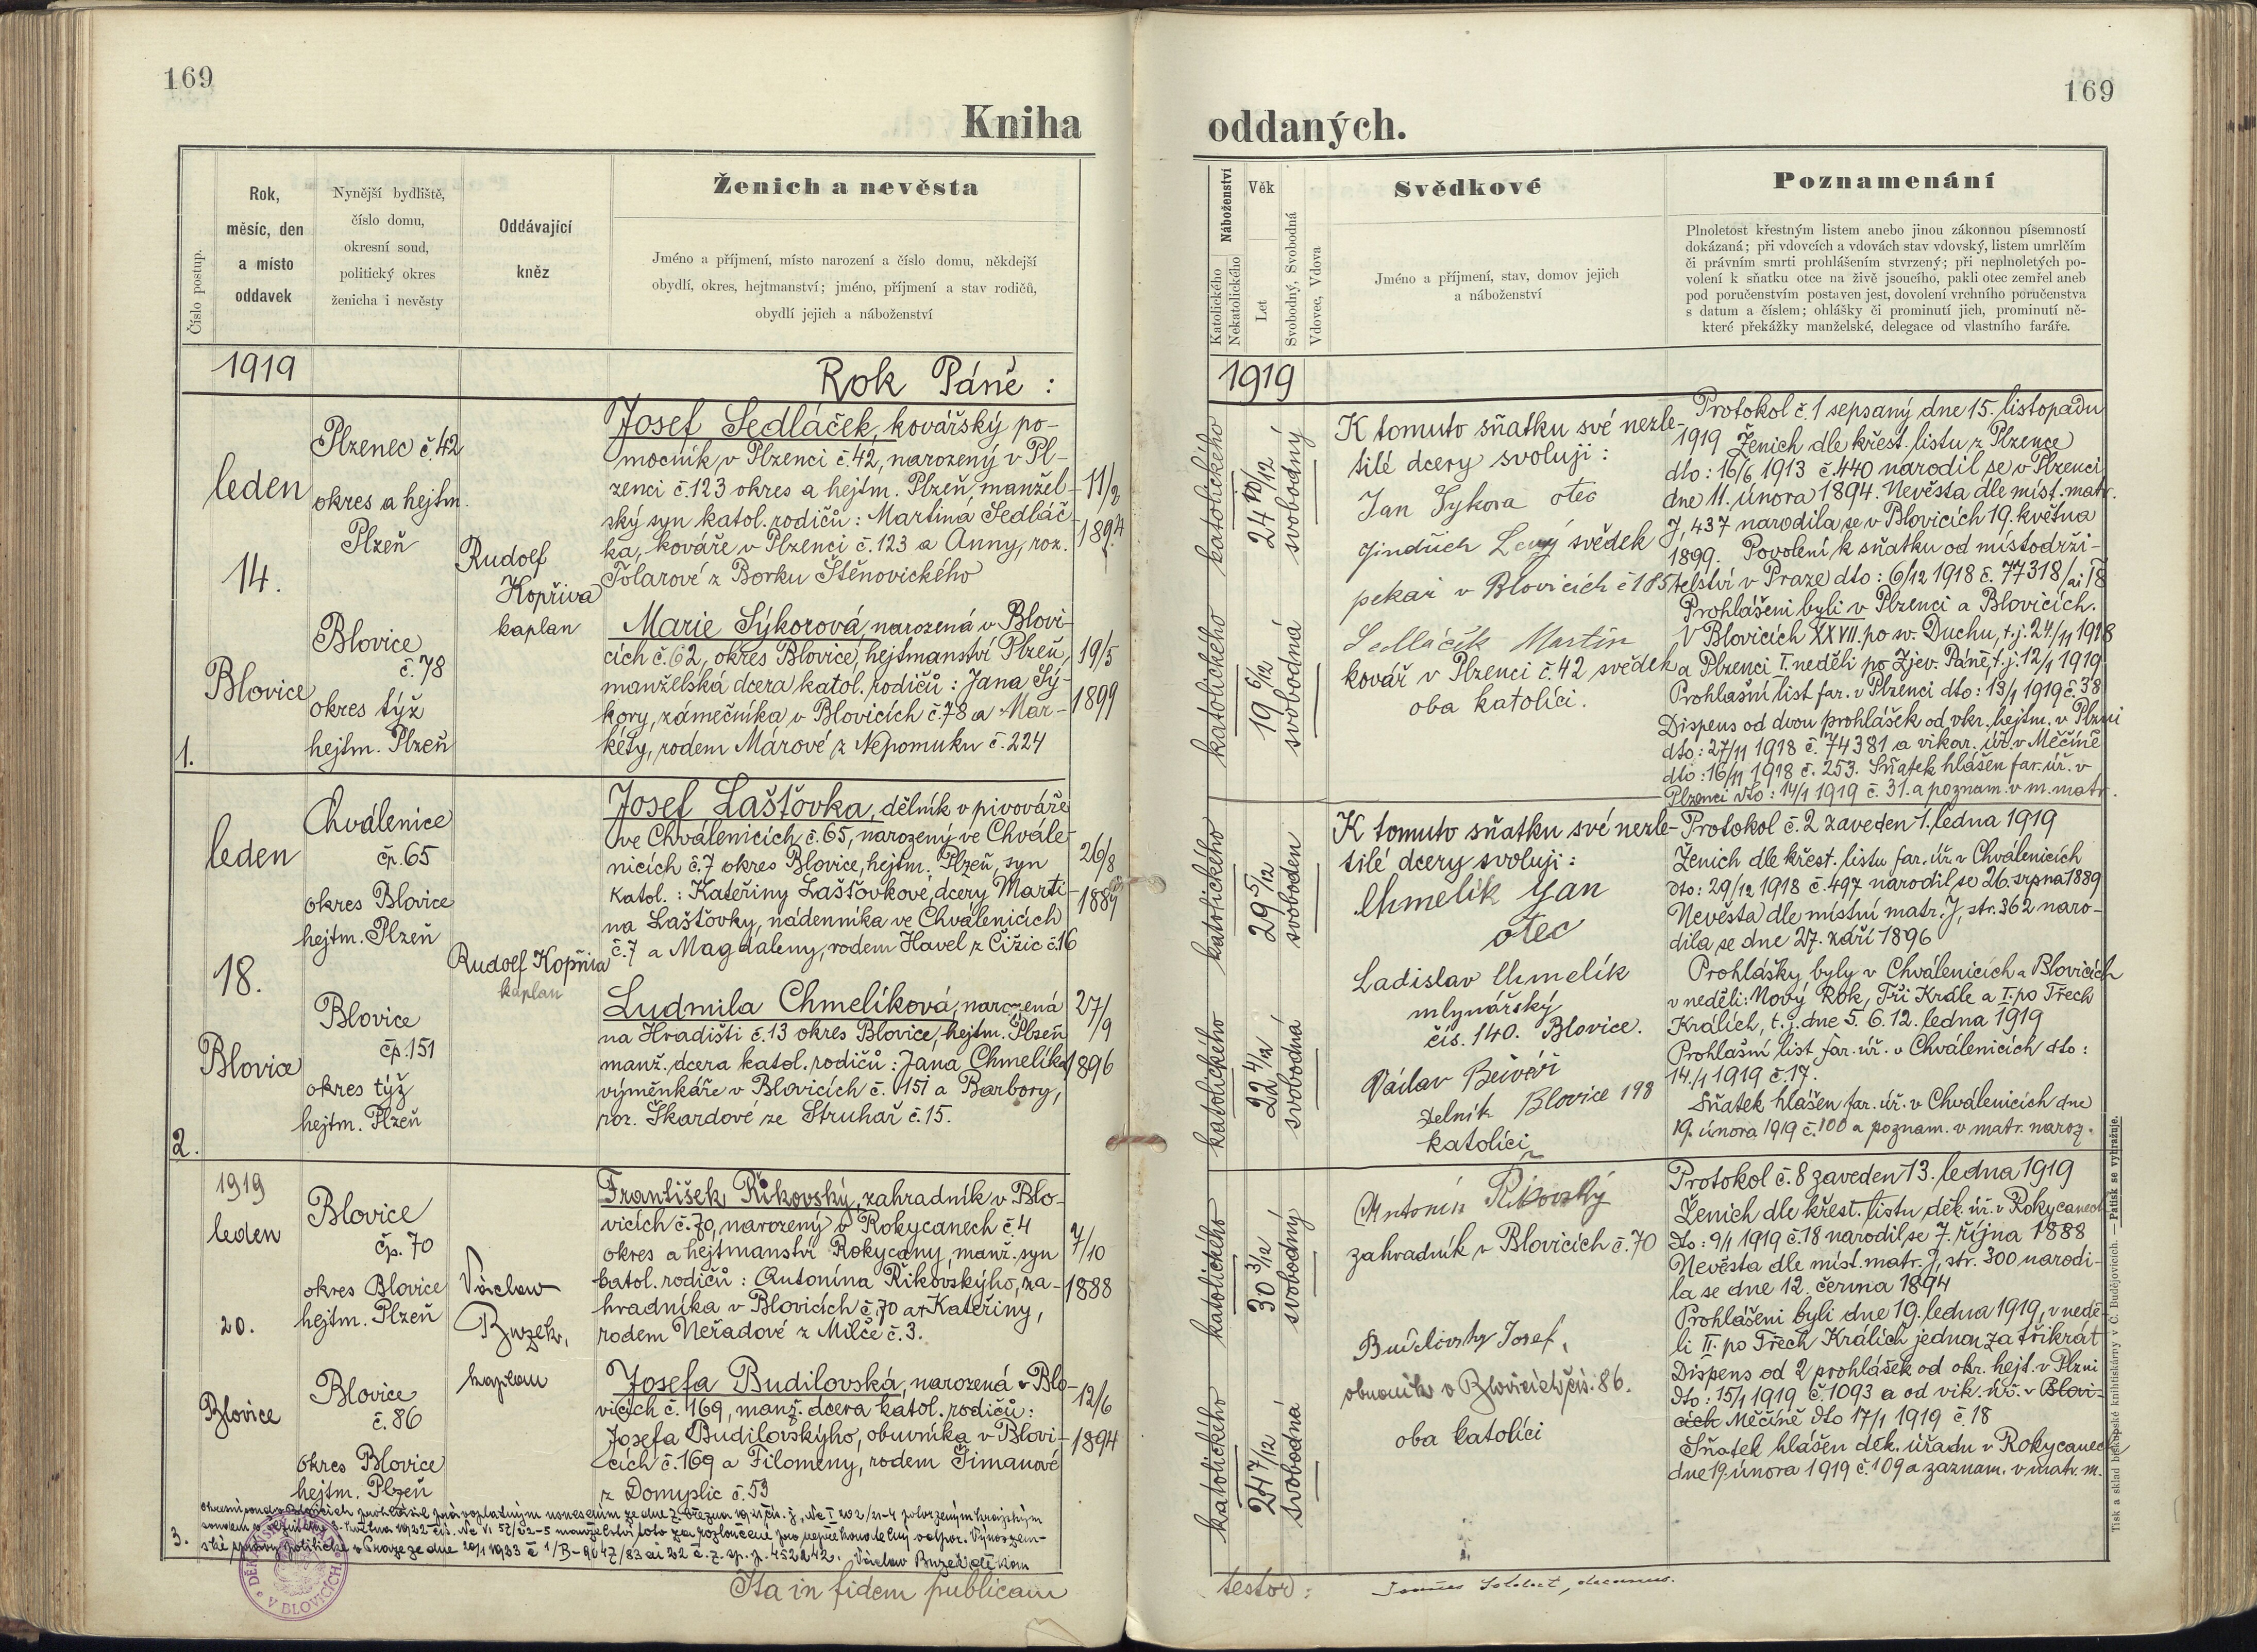 169
Kniha
Číslo postup.
Rok,
měsíc, den
a místo
oddavek
Nynější bydliště,
číslo domu,
okresní soud,
politický okres
ženicha i nevěsty
Oddávající
kněz
Ženich a nevěsta
Jméno a příjmení, místo narození a číslo domu, někdejší
obydlí, okres, hejtmanství; jméno, příjmení a stav rodičů,
obydlí jejich a náboženství
1919
Rok Páně :
leden
14.
Blovice
1.
Plzenec č. 42
okres a hejtm.
Plzeň
Blovice
č. 78
okres týž
hejtm. Plzeň
Rudolf
Kopřiva
kaplan
Josef Sedláček, kovářský po-
mocník v Plzenci č. 42, narozený v Pl-
zenci č. 123 okres a hejtm. Plzeň, manžel-
ský syn katol. rodičů : Martina Sedláč-
ka, kováře v Plzenci č. 123 a Anny, roz.
Tolarové z Borku Štěnovického
11/2
1894
Marie Sýkorová, narozená v Blovi-
cích č. 62, okres Blovice, hejtmanství Plzeň,
manželská dcera katol. rodičů : Jana Sý-
kory, zámečníka v Blovicích č. 78 a Mar-
kéty, rodem Márové z Nepomuku č. 224
19/5
1899
leden
18.
Blovice
2.
Chválenice
čp. 65
okres Blovice
hejtm. Plzeň
Blovice
čp. 151
okres týž
hejtm. Plzeň
Rudolf Kopřiva
kaplan
Josef Lašťovka, dělník v pivováře
ve Chválenicích č. 65, narozený ve Chvále-
nicích č. 7 okres Blovice, hejtm. Plzeň, syn
katol. : Kateřiny Lašťovkové, dcery Marti-
na Lašťovky, nádenníka ve Chválenicích
č. 7 a Magdaleny, rodem Havel z Čižic č. 16
26/8
1889
Ludmila Chmelíková, narozená
na Hradišti č. 13 okres Blovice, hejtm. Plzeň
manž. dcera katol. rodičů : Jana Chmelíka
výměnkáře v Blovicích č. 151 a Barbory,
roz. Škardové ze Struhař č. 15.
27/9
1896
1919
leden
20.
Blovice
3.
Blovice
čp. 70
okres Blovice
hejtm. Plzeň
Blovice
č. 86
okres Blovice
hejtm. Plzeň
Václav
Buzek,
kaplan
František Řikovský, zahradník v Blo-
vicích č. 70, narozený v Rokycanech č. 4
okres a hejtmanství Rokycany, manž. syn
katol. rodičů : Antonína Řikovskýho, za-
hradníka v Blovicích č. 70 a Kateřiny,
rodem Neřadové z Milče č. 3.
7/10
1888
Josefa Budilovská, narozená v Blo-
vicích č. 169, manž. dcera katol. rodičů :
Josefa Budilovskýho, obuvníka v Blovi-
cích č. 169 a Filomeny, rodem Šimanové
z Domyslic č. 53
12/6
1894
Okresní soud v Blovicích prohlásil právoplatným usnesením ze dne 2. března 1921 čís. j. Nc I 202/21-4 potvrzeným krajským
soudem v Plzni 8. května 1922 čís. Nc VI 57/22-5 manželství toto za rozloučené pro nepřekonatelný odpor. Výnos zem-
ské správy politické v Praze ze dne 20/1 1923 č. Václav Buzek děkan
DĚKANSKÝ V BLOVICÍCH
Ita in fidem publicam
169
oddaných.
Náboženství
Katolického
Nekatolického
Věk
Let
Svobodný, Svobodná
Vdovec, Vdova
Svědkové
Jméno a příjmení, stav, domov jejich
a náboženství
Poznamenání
Plnoletost křestným listem anebo jinou zákonnou písemností
dokázaná; při vdovcích a vdovách stav vdovský, listem umrlčím
či právním smrti prohlášením stvrzený; při neplnoletých po-
volení k sňatku otce na živě jsoucího, pakli otec zemřel aneb
pod poručenstvím postaven jest, dovolení vrchního poručenstva
s datum a číslem; ohlášky či prominutí jich, prominutí ně-
které překážky manželské, delegace od vlastního faráře.
1919
katolického
24 10/12
svobodný
katolického
19 6/12
svobodná
K tomuto sňatku své nezle-
tilé dcery svoluji :
Jan Sykora otec
Jindřich Levý svědek
pekař v Blovicích č 185
Sedláček Martin
kovář v Plzenci č. 42 svědek
oba katolíci.
Protokol č. 1 sepsaný dne 15. listopadu
1919 Ženich dle křest. listu z Plzence
dto : 16/6 1913 č. 440 narodil se v Plzenci
dne 11. února 1894. Nevěsta dle míst. matr.
J, 437 narodila se v Blovicích 19. května
1899. Povolení k sňatku od místodrži-
telství v Praze dto : 6/12 1918 č. 77318/ai 18
Prohlášeni byli v Plzenci a Blovicích.
V Blovicích XXVII. po sv. Duchu, t. j. 24/11 1918
a Plzenci I. neděli po Zjev. Páně, t. j. 12/1 1919
Prohlašní list far. v Plzenci dto : 13/1 1919 č. 38
Dispens od dvou prohlášek od okr. hejtm. v Plzni
dto : 27/11 1918 č. 74381 a vikar. úř. v Měčíně
dto : 16/11 1918 č. 253. Sňatek hlášen far. úř. v
Plzenci dto : 14/1 1919 č. 31. a poznam. v m. matr.
katolického
29 5/12
svoboden
katolického
22 4/12
svobodná
K tomuto sňatku své nezle-
tilé dcery svoluji :
Chmelík Jan
otec
Ladislav Chmelík
mlynářský
čís. 140. Blovice.
Václav
Delník Blovice 198
katolíci
Protokol č. 2 zaveden 1. ledna 1919
Ženich dle křest. listu far. úř. v Chválenicích
dto : 29/12 1918 č. 497 narodil se 26. srpna 1889
Nevěsta dle místní matr. J, str. 362 naro-
dila se dne 27. září 1896
Prohlášky byly v Chválenicích a Blovicích
v neděli : Nový Rok, Tři Krále a I. po Třech
Králích, t. j. dne 5. 6. 12. ledna 1919
Prohlašní list far. úř. v Chválenicích dto :
14./1 1919 č. 17.
Sňatek hlášen far. úř. v Chválenicích dne
19. února 1919 č. 100 a poznam. v matr. naroz.
katolického
30 3/12
svobodný
katolického
24 7/12
svobodná
Antonín Řikovský
zahradník v Blovicích č. 70
Budilovsky Josef,
obuvník v Blovicích čís. 86.
oba katolíci
Protokol č. 8 zaveden 13. ledna 1919
Ženich dle křest. listu děk. úř. v Rokycanech
dto : 9/1 1919 č. 18 narodil se 7. října 1888
Nevěsta dle míst. matr. J, str. 300 narodi-
la se dne 12. června 1894
Prohlášeni byli dne 19. ledna 1919, v nedě-
li II. po Třech Králích jednou za třikrát
Dispens od 2 prohlášek od okr. hejt. v Plzni
dto : 15/1 1919 č 1093 a od vik. úř. v Blovi-
cích Měčíně dto 17/1 1919 č. 18
Sňatek hlášen děk. úřadu v Rokycanech
dne 19. února 1919 č. 109 a zaznam. v matr. n.
testor :
decanus.
Tisk a sklad biskupské knihtiskárny v Č. Budějovicích. — Patisk se vyhražuje.